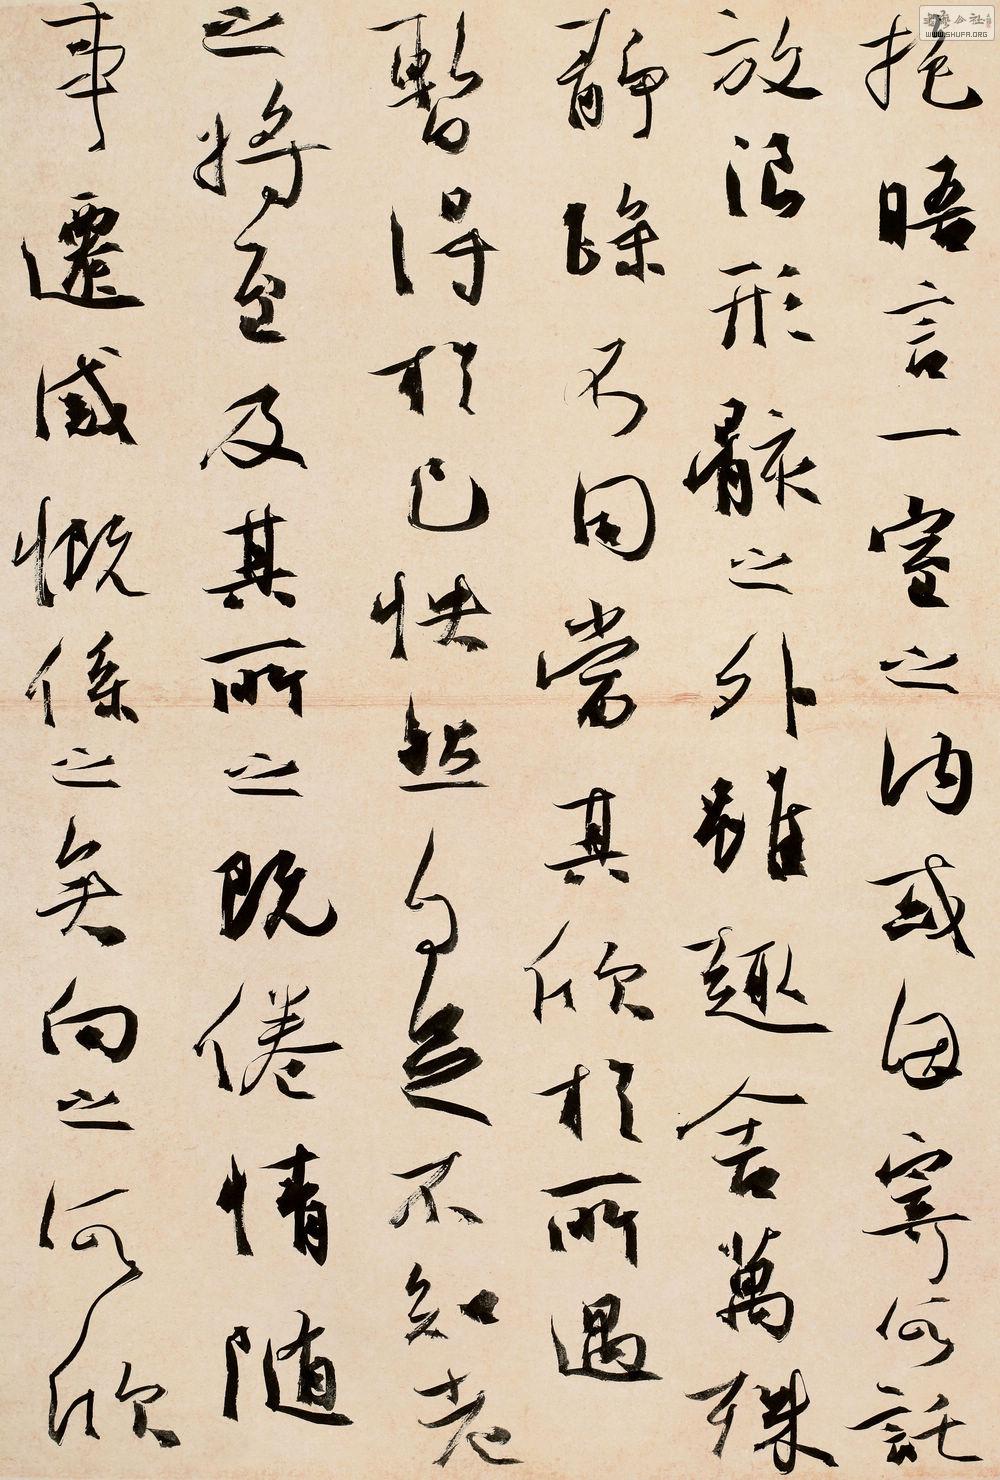 抱晤言一室之內或因寄所託
放浪形骸之外雖趣舍萬殊
靜躁不同當其欣於所遇
暫得於己快然自足不知老
之將至及其所之既倦情隨
事遷感慨係之矣向之所欣
WWW.SHUFA.ORG